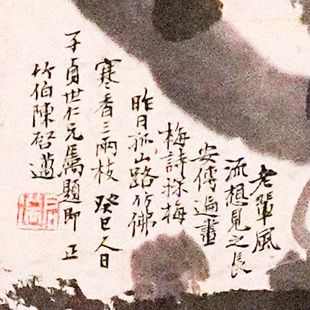 老輩風
流想見之長
安傳遍畫
梅詩探梅
昨日孤山路彷彿
寒香三兩枝 癸巳人日
子貞世仁元屬題即正
竹伯陳啓邁